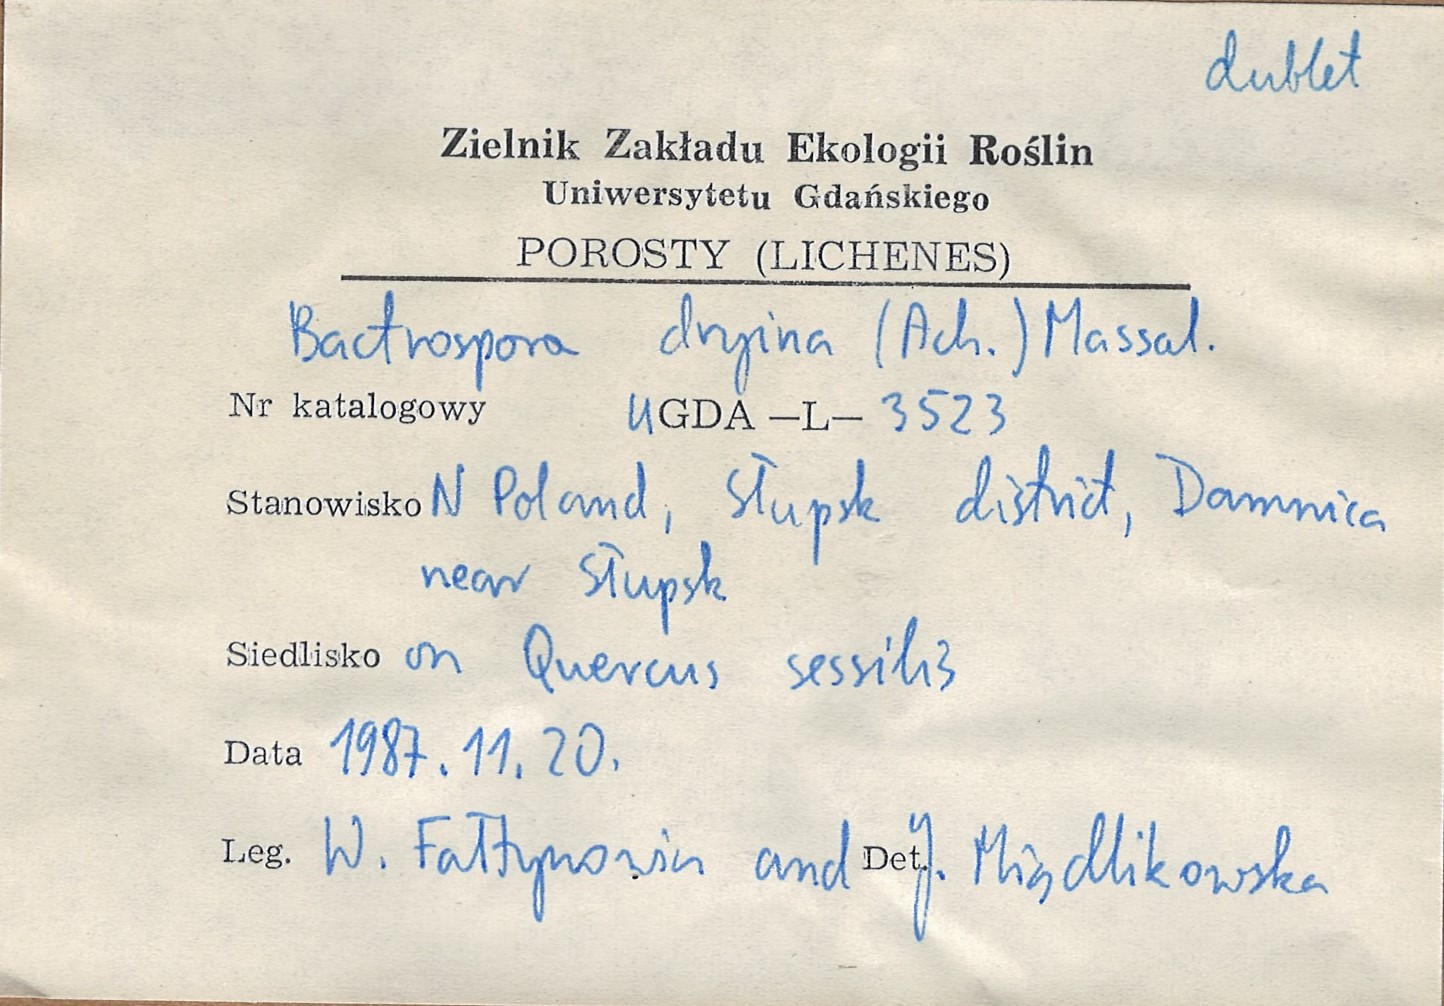 dublet
Zielnik Zakładu Ekologii Roślin
Uniwersytetu Gdańskiego
POROSTY (LICHENES)
Bactrospora dryina (Ach.) Massal.
Nr katalogowy UGDA —L— 3523
Stanowisko N Poland, Słupsk district, Damnica
near Słupsk
Siedlisko on Quercus sessilis
Data 1987.11.20.
Leg. W. Fałtynowicz and Det. J. Miądlikowska